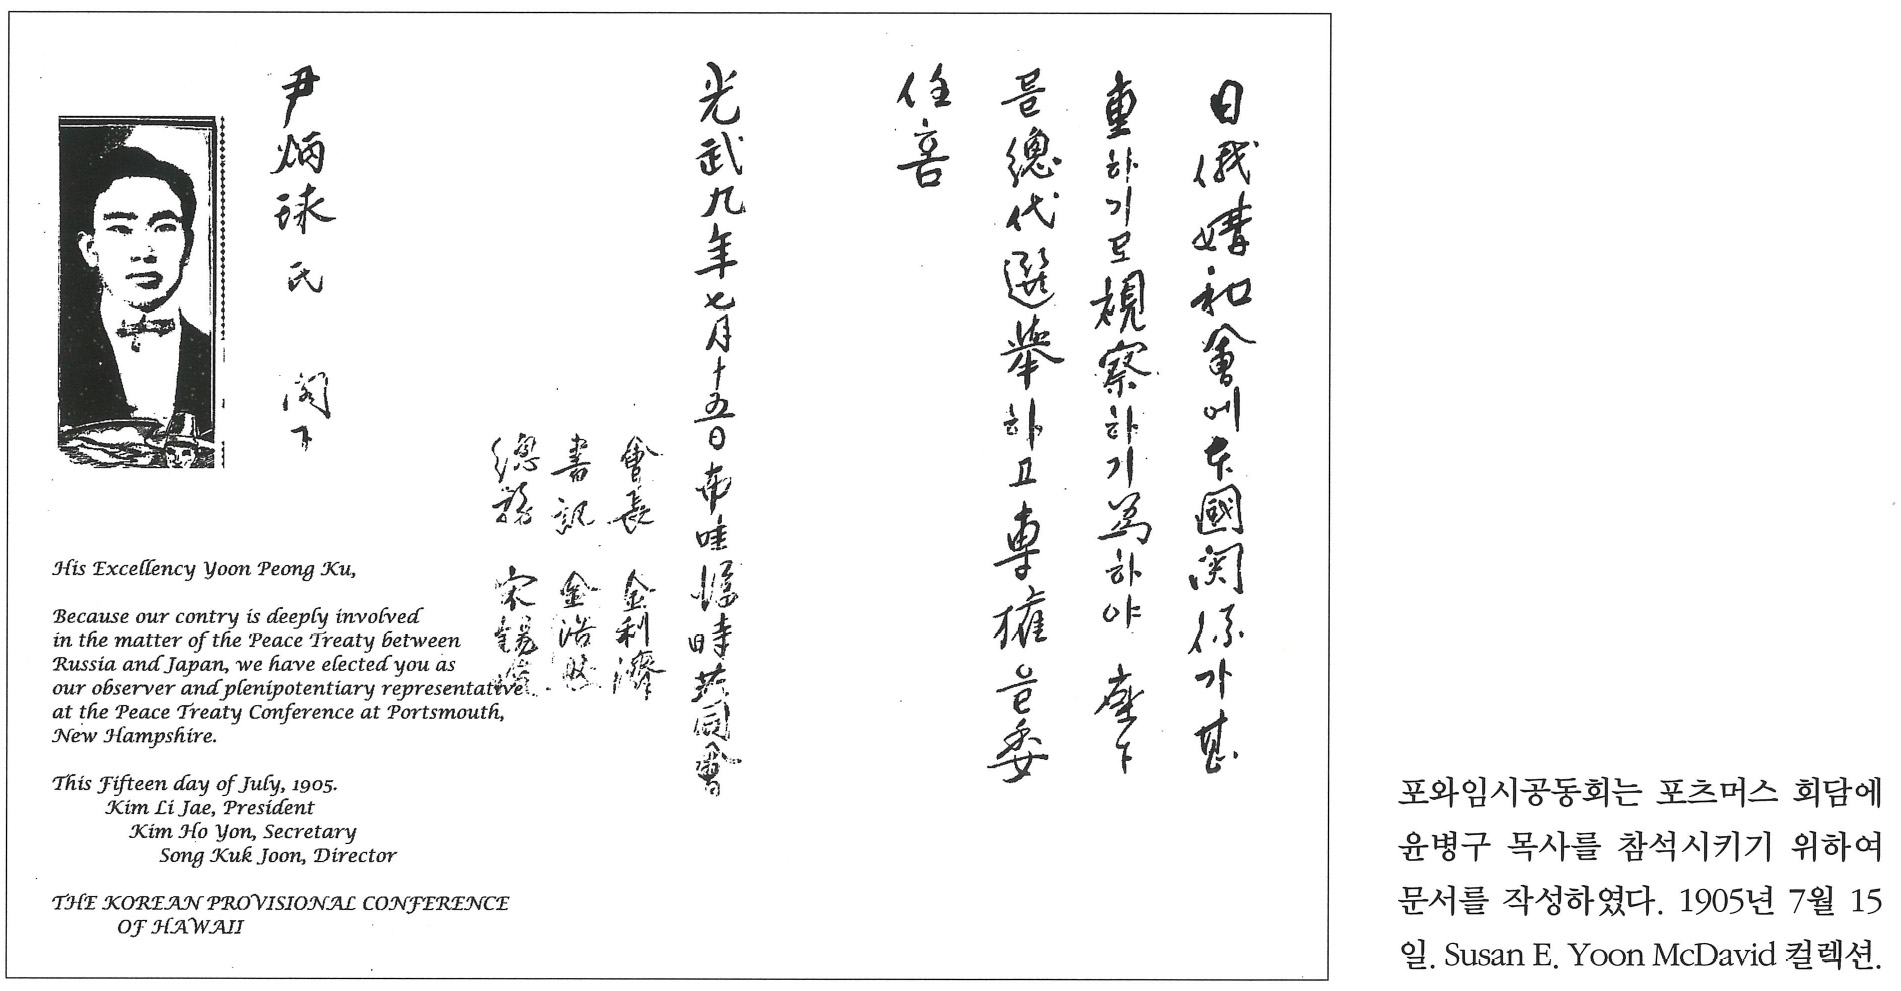 日俄媾和會에本國関係가甚
重하기로視察하기爲하야 座下
를總代選擧하고專權을委
任홈
光武九年七月十五日布哇臨時共同會
會長 金利濟
書記 金浩
總務 宋錫
尹炳球氏 閣下
His Excellency Yoon Peong Ku,
Because our contry is deeply involved
in the matter of the Peace Treaty between
Russia and Japan, we have elected you as
our observer and plenipotentiary representative
at the Peace Treaty Conference at Portsmouth,
New Hampshire.
This Fifteen day of July, 1905.
Kim Li Jae, President
Kim Ho Yon, Secretary
Song Kuk Joon, Director
THE KOREAN PROVISIONAL CONFERENCE
OF HAWAII
포와임시공동회는 포츠머스 회담에
윤병구 목사를 참석시키기 위하여
문서를 작성하였다. 1905년 7월 15
일. Susan E. Yoon McDavid 컬렉션.